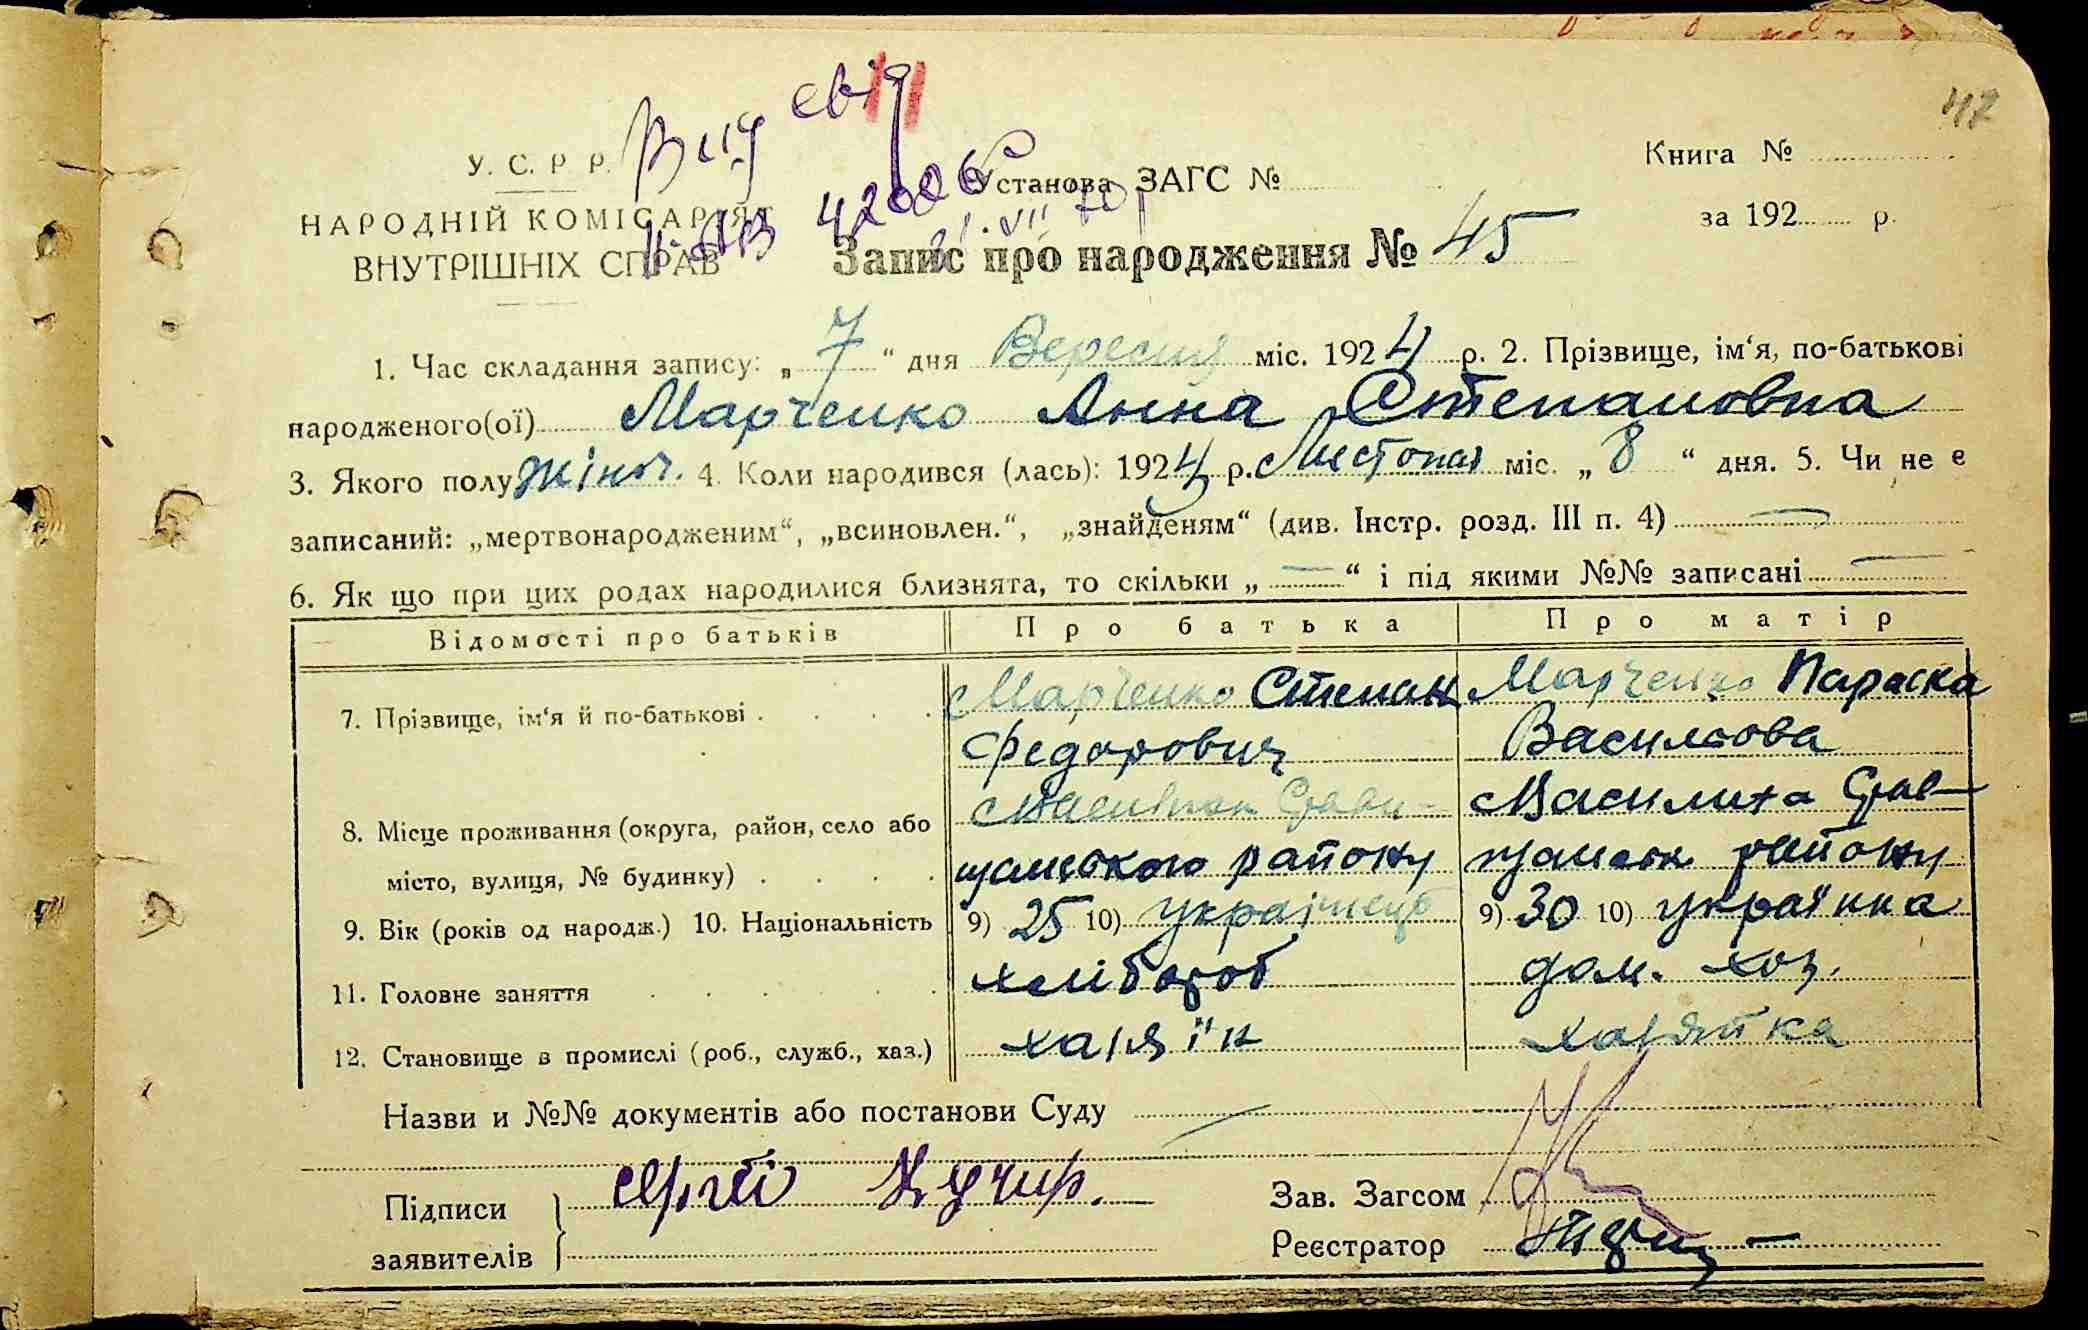 47
Вид свід
У. С. Р. Р.
НАРОДНІЙ КОМІСАРІЯТ
ВНУТРІШНІХ СПРАВ
42006
Установа ЗАГС №
Книга №
за 192 р.
Запис про народження № 45
1. Час складання запису: „ 7 “ дня Вересня міс. 1924 р. 2. Прізвище, ім‘я, по-батькові
народженого(ої) Марченко Анна Степановна
3. Якого полу жіноч. 4. Коли народився (лась): 192 р. Листопад міс. „ 8 “ дня. 5. Чи не є
записаний: „мертвонародженим“, „всиновлен.“, „знайденям“ (див. Інстр. розд. III п. 4) —
6. Як що при цих родах народилися близнята, то скільки „ — “ і під якими №№ записані —
Відомості про батьків Про батька Про матір
7. Прізвище, ім‘я й по-батькові . . . . Марченко Степан Марченко Параска
Федорович Василівова
8. Місце проживання (округа, район, село або Василиха Став-
місто, вулиця, № будинку) . . . . щанського району району
9. Вік (років од народж.) 10. Національність 9) 25 10) українець 9) 30 10) українка
11. Головне заняття . . . . . хлібороб дом. хоз.
12. Становище в промислі (роб., служб., хаз.) хазяїн хазяйка
Назви и №№ документів або постанови Суду —
Підписи Сергій Кучир.
заявителів
Зав. Загсом
Реєстратор